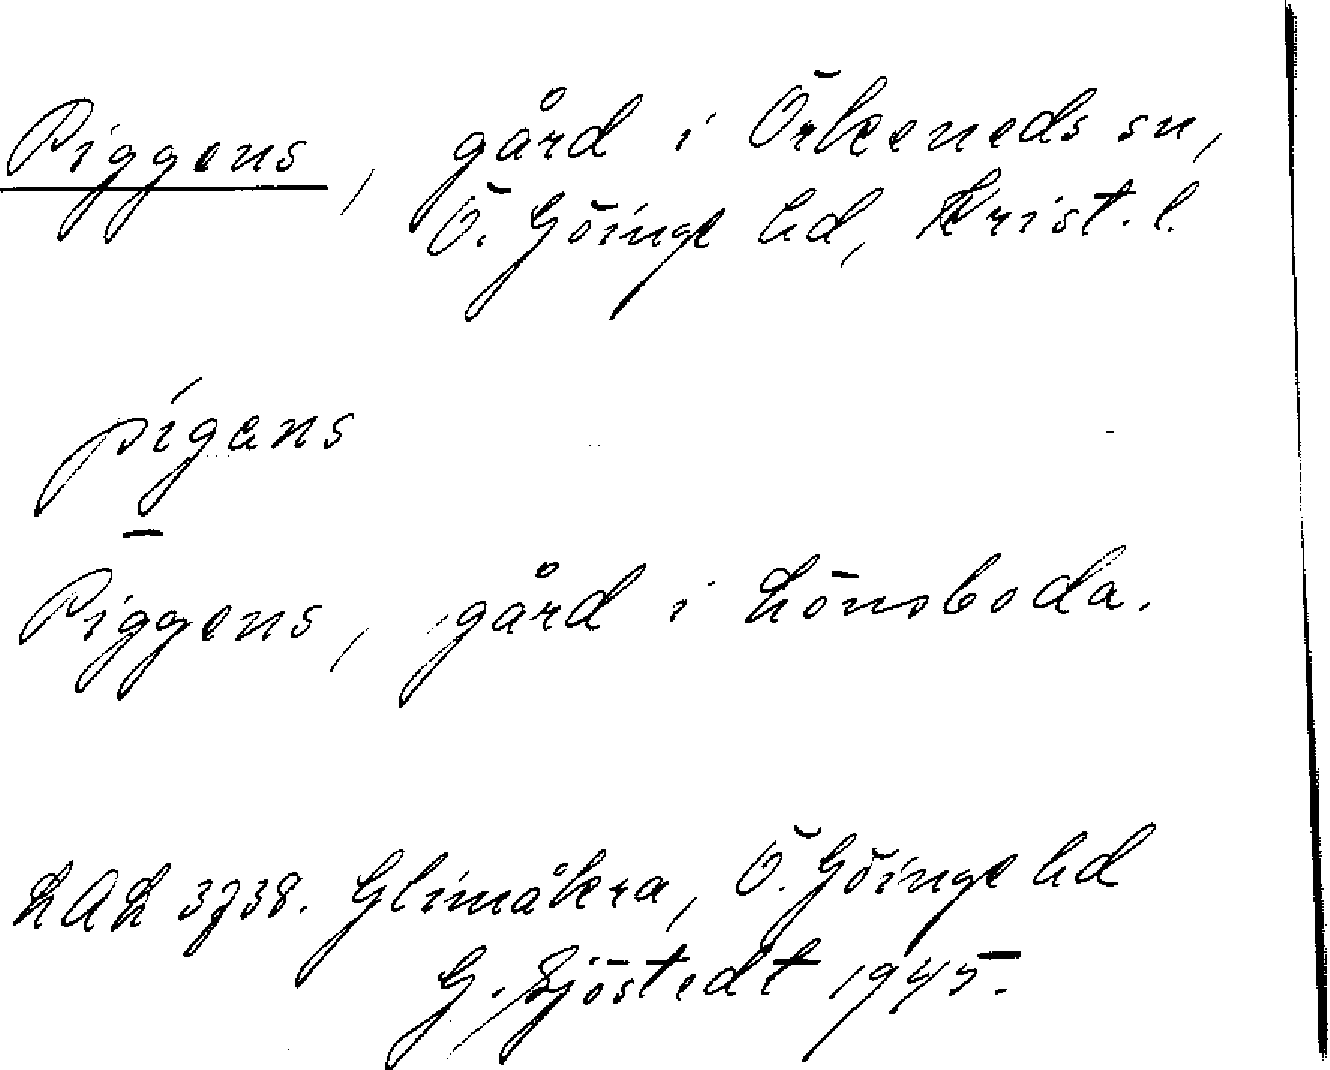 Piggens, gård i Örkeneds sn,
Ö. Göinge hd, Krist. l.
pígans
Piggens, gård i Lönsboda.
LAL 3738. Glimåkra, Ö. Göinge hd
G. Sjöstedt 1945.